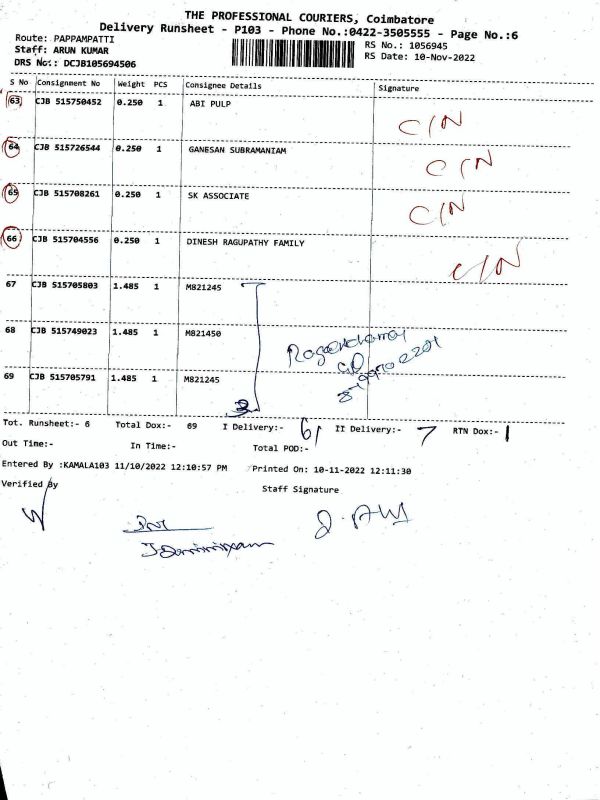 THE PROFESSIONAL COURIERS, Coimbatore
Delivery Runsheet - P103 - Phone No.:0422-3505555 - Page No.:6
Route: PAPPAMPATTI
Staff: ARUN KUMAR
DRS No.: DCJB105694506
RS No.: 1056945
RS Date: 10-Nov-2022
S No Consignment No Weight PCS Consignee Details Signature
63 CJB 515750452 0.250 1 ABI PULP C/N
64 CJB 515726544 0.250 1 GANESAN SUBRAMANIAM C/N
65 CJB 515708261 0.250 1 SK ASSOCIATE C/N
66 CJB 515704556 0.250 1 DINESH RAGUPATHY FAMILY C/N
67 CJB 515705803 1.485 1 M821245
68 CJB 515749023 1.485 1 M821450
69 CJB 515705791 1.485 1 M821245
3
Tot. Runsheet:- 6 Total Dox:- 69 I Delivery:- 61 II Delivery:- 7 RTN Dox:- 1
Out Time:- In Time:- Total POD:-
Entered By :KAMALA103 11/10/2022 12:10:57 PM Printed On: 10-11-2022 12:11:30
Verified By Staff Signature